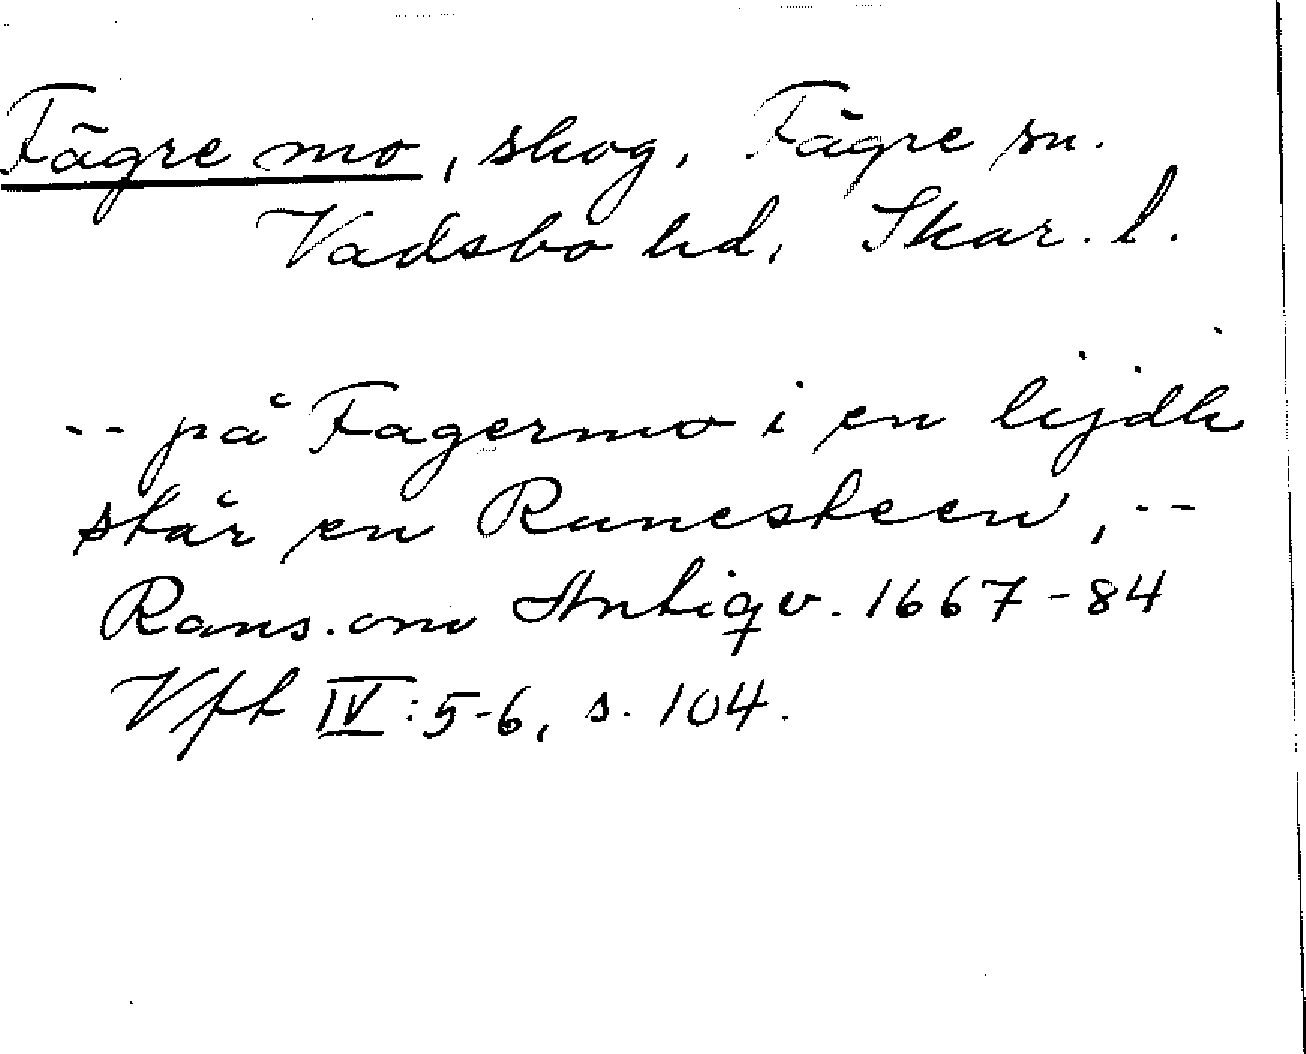 Fägre mo, skog, Fägre sn.
Vadsbo hd, Skar. l.
-- på Fagermo i en lijdh
står en Runesteen, --
Rans. om Antiqv. 1667-84
Vfk IV:5-6, s. 104.